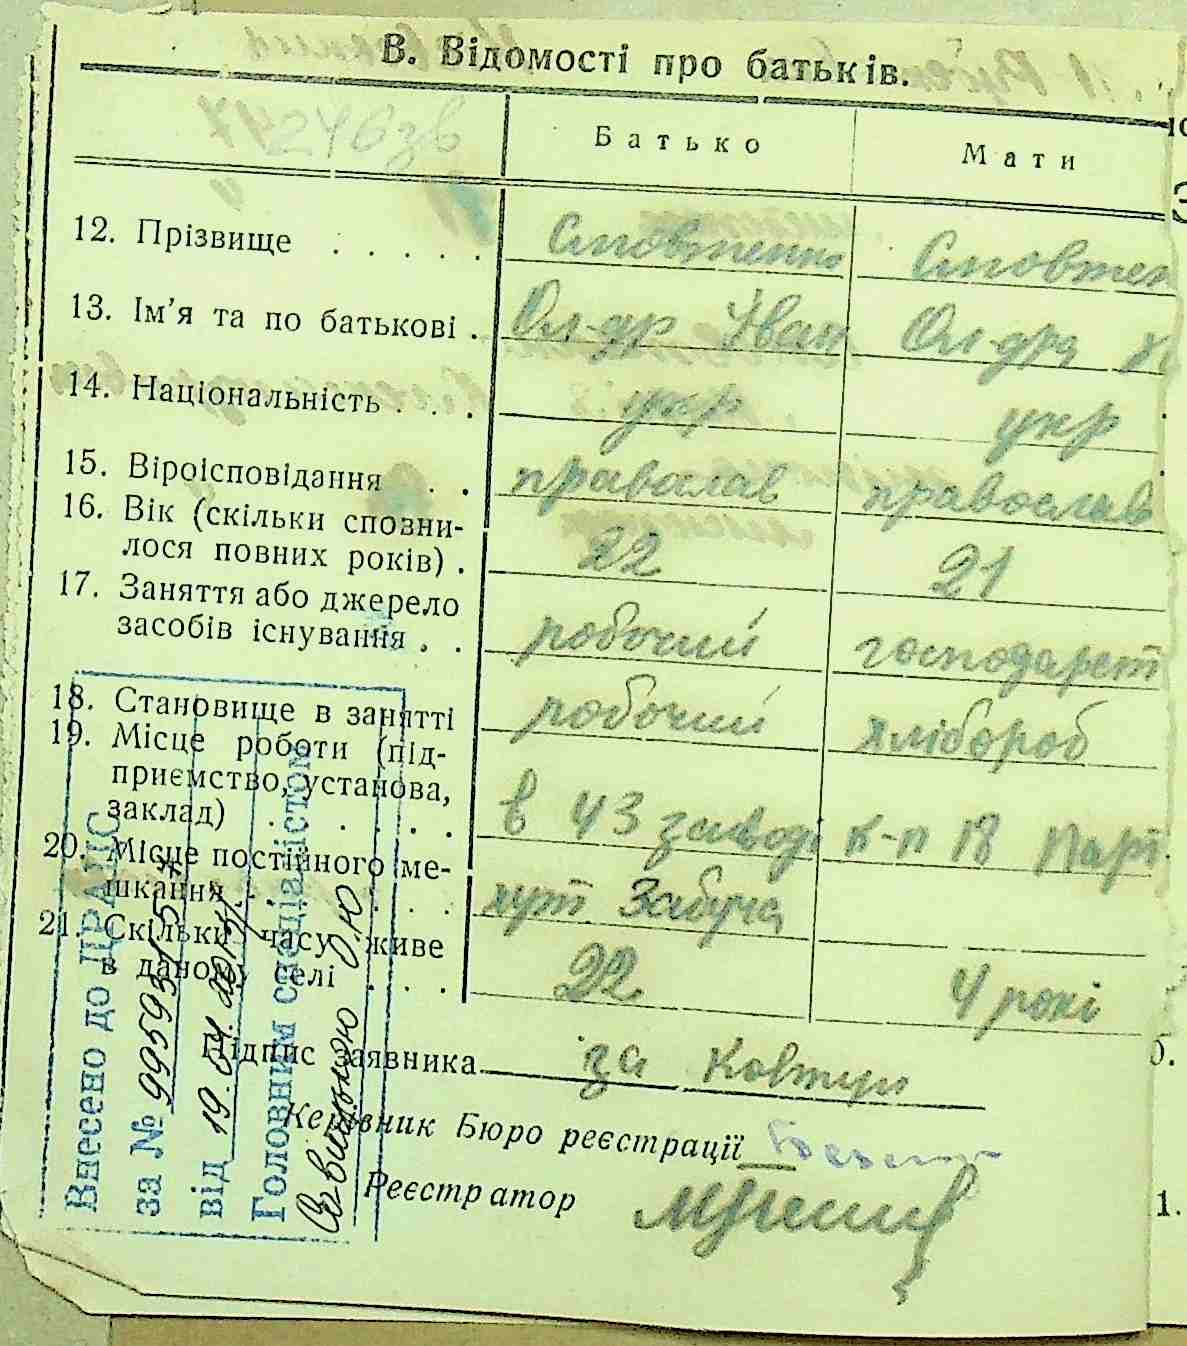 В. Відомості про батьків.
246зв
Батько Мати
12. Прізвище . . . . . Смовженко Смовжен
13. Ім'я та по батькові . Ол-др Іван Ол-дра
14. Національність . . . укр укр
15. Віроісповідання . . православ православ
16. Вік (скільки сповни-
лося повних років) . 22 21
17. Заняття або джерело
засобів існування . . робочий господарст
18. Становище в занятті робочий хлібороб
19. Місце роботи (під-
приємство, установа,
заклад) . . . . . в 43 заводі К-п 18 Парт
20. Місце постійного ме-
шкання . . . . хут Забуча
21. Скільки часу живе
в даному селі . . . 22 4 рокі
Підпис заявника за Ковтун
Керівник Бюро реєстрації
Реєстратор
Внесено до ДРАЦС
за №
від 19.04.
Головним спеціалістом